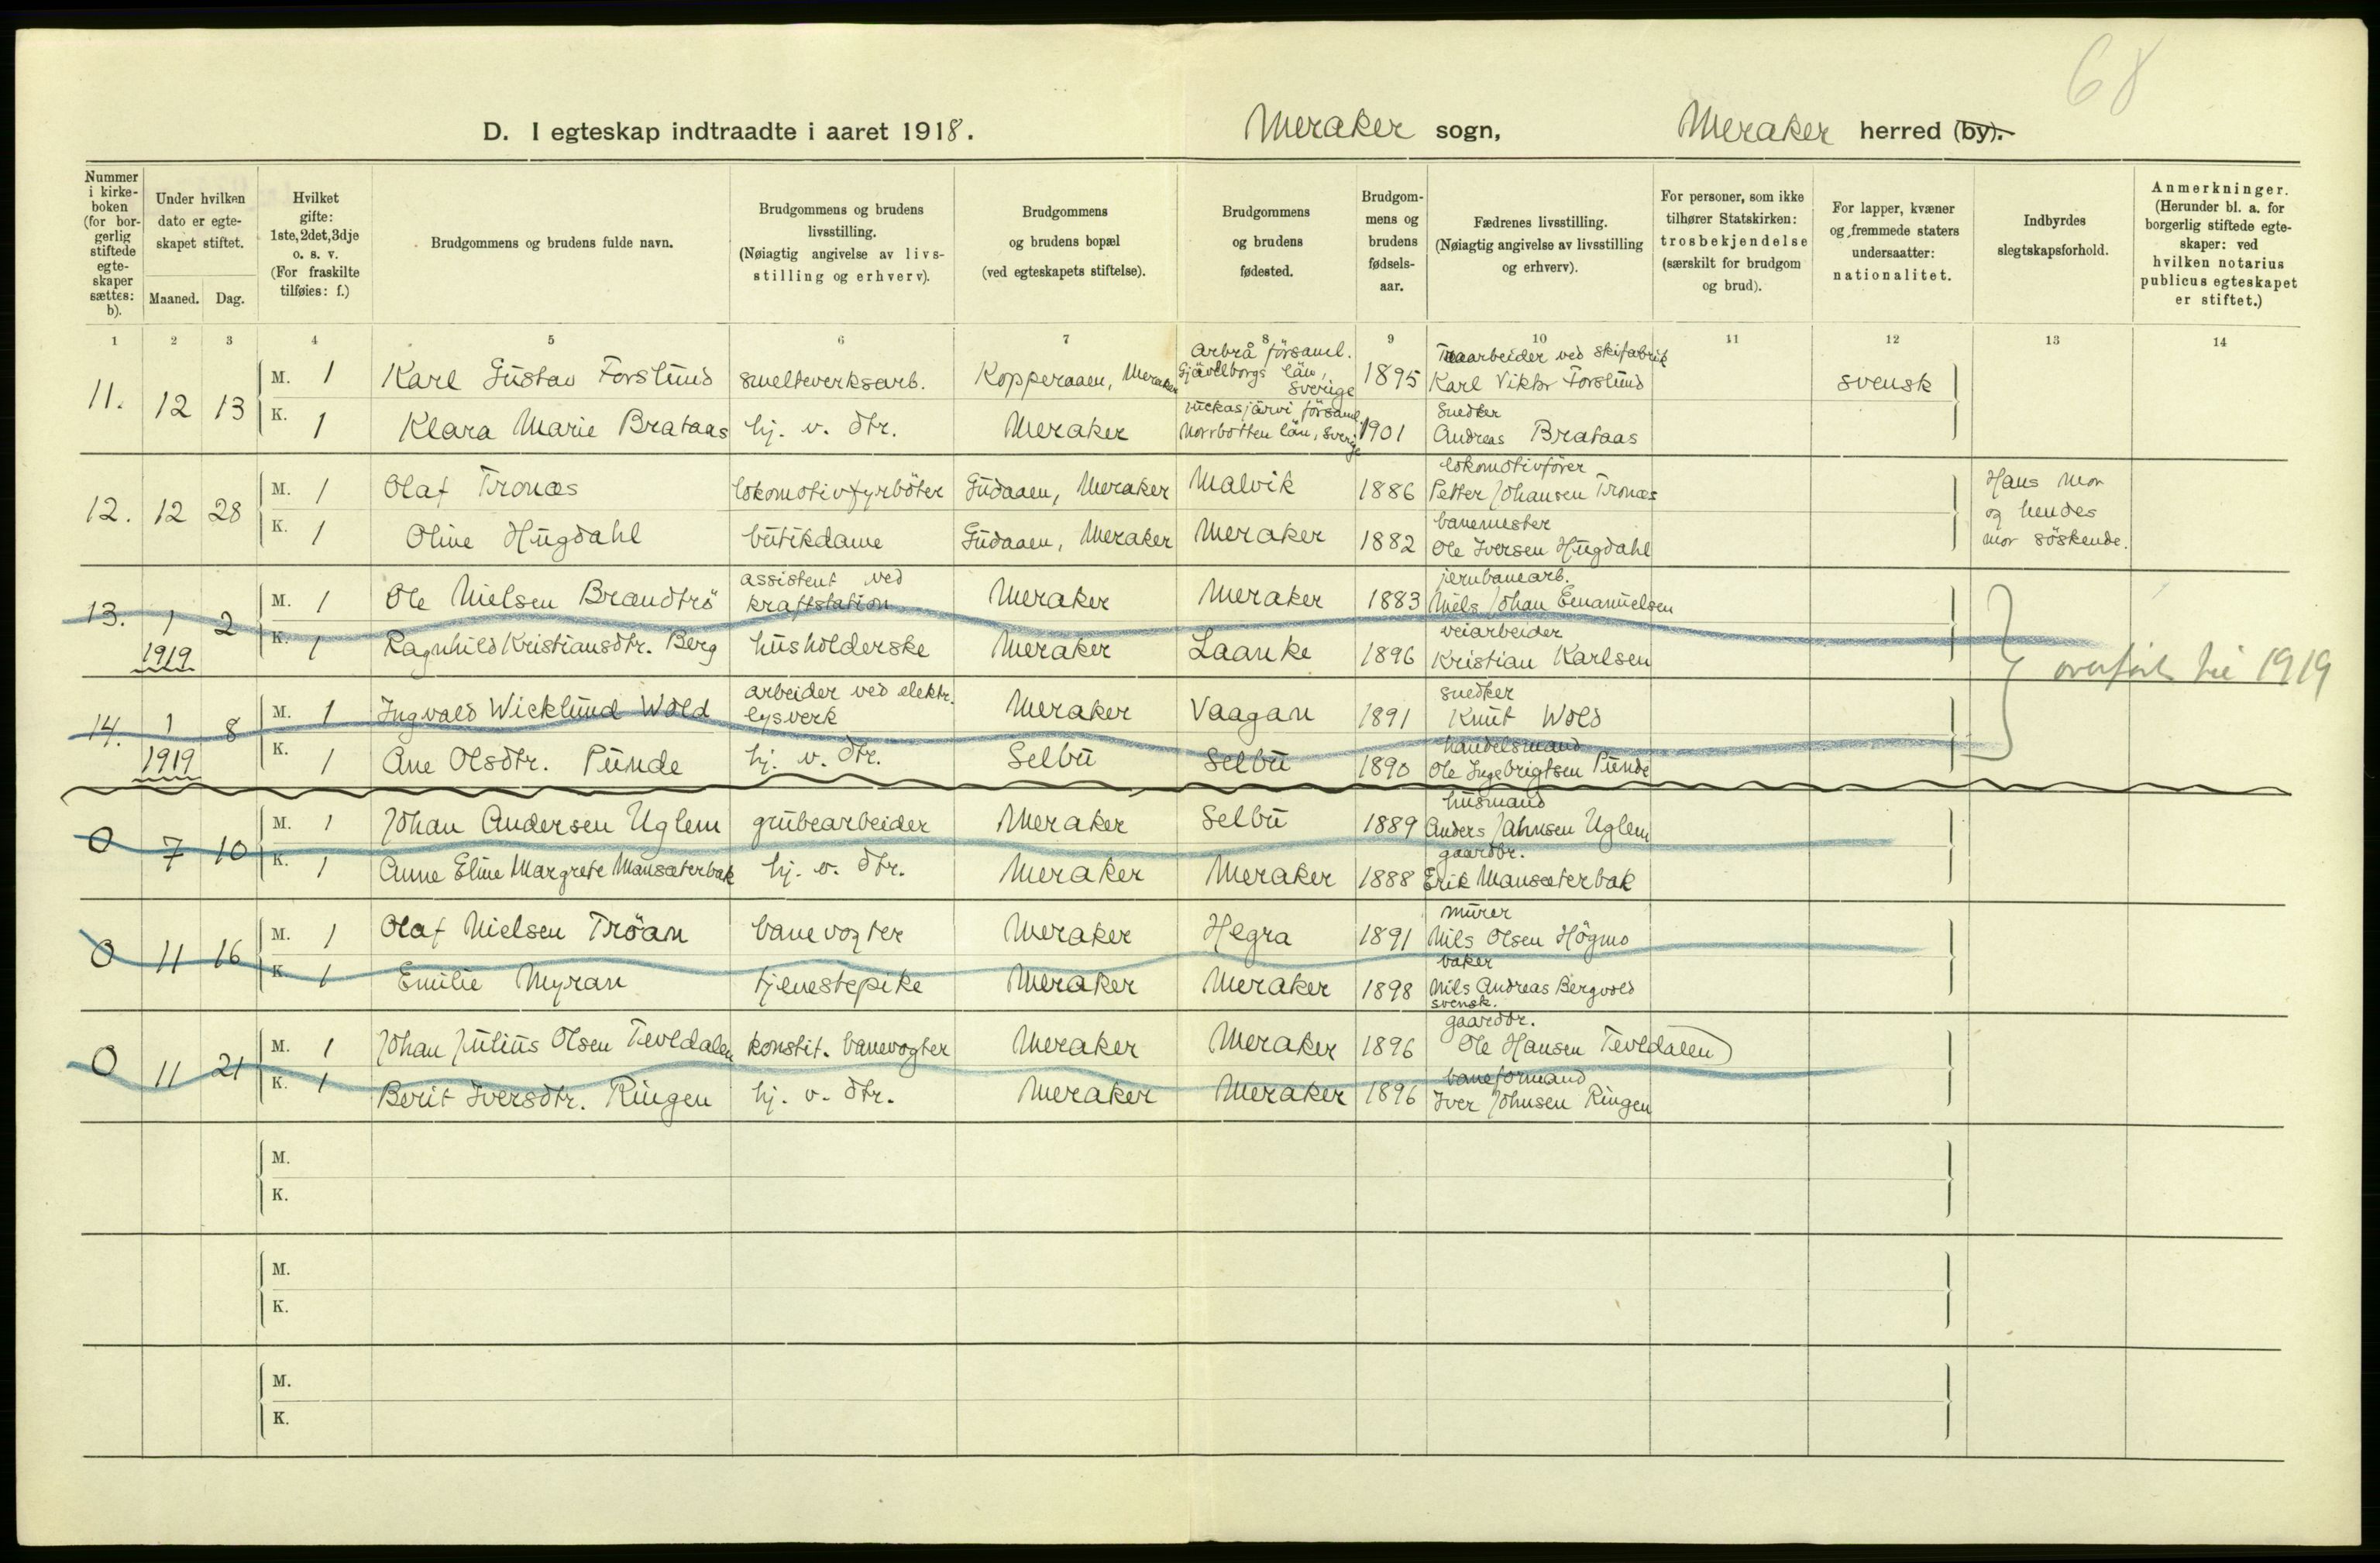 68
D. I egteskap indtraadte i aaret 1918. Meraker sogn, Meraker herred (by).
Nummer i kirkeboken (for borgerlig stiftede egteskaper sættes: b).
Under hvilken dato er egteskapet stiftet.
Maaned. Dag.
Hvilket gifte: 1ste, 2det, 3dje o. s. v. (For fraskilte tilføies: f.)
Brudgommens og brudens fulde navn.
Brudgommens og brudens livsstilling. (Nøiagtig angivelse av livsstilling og erhverv).
Brudgommens og brudens bopæl (ved egteskapets stiftelse).
Brudgommens og brudens fødested.
Brudgommens og brudens fødselsaar.
Fædrenes livsstilling. (Nøiagtig angivelse av livsstilling og erhverv).
For personer, som ikke tilhører Statskirken: trosbekjendelse (særskilt for brudgom og brud).
For lapper, kvæner og fremmede staters undersaatter: nationalitet.
Indbyrdes slegtskapsforhold.
Anmerkninger. (Herunder bl. a. for borgerlig stiftede egteskaper: ved hvilken notarius publicus egteskapet er stiftet.)
1 2 3 4 5 6 7 8 9 10 11 12 13 14
11. 12 13 M. 1 Karl Gustav Forslund smelteverksarb. Kopperaaen, Meraker Arbrå församl. Gjävelborgs län, Sverige 1895 Træarbeider ved skifabrik Karl Viktor Forslund svensk
K. 1 Klara Marie Brataas hj. v. dtr. Meraker Juckasjärvi församl. Norrbotten län, Sverige 1901 Snedker Andreas Brataas
12. 12 28 M. 1 Olaf Tronæs lokomotivfyrböter Gudaaen, Meraker Malvik 1886 lokomotivförer Petter Johansen Tronæs Hans mor og hendes mor söskende.
K. 1 Oline Hugdahl butikdame Gudaaen, Meraker Meraker 1882 banemester Ole Iversen Hugdahl
13. 1 2 M. 1 Ole Nielsen Brændtrö assistent ved kraftstation Meraker Meraker 1883 jernbanearb. Niels Johan Emanuelsen
1919 K. 1 Ragnhild Kristiansdtr. Berg husholderske Meraker Laanke 1896 veiarbeider Kristian Karlsen
overført til 1919
14. 1 8 M. 1 Ingvald Wicklund Wold arbeider ved elektr. lysverk Meraker Vaagan 1891 snedker Knut Wold
1919 K. 1 Ane Olsdtr. Punde hj. v. dtr. Selbu Selbu 1890 handelsmand Ole Ingebrigtsen Punde
0 7 10 M. 1 Johan Andersen Uglem grubearbeider Meraker Selbu 1889 husmand Anders Jahnsen Uglem
K. 1 Anne Eline Margrete Mansæterbak hj. v. dtr. Meraker Meraker 1888 gaardbr. Erik Mansæterbak
0 11 16 M. 1 Olaf Nielsen Tröan banevogter Meraker Hegra 1891 murer Nils Olsen Högmo
K. 1 Emilie Myran tjenestepike Meraker Meraker 1898 baker Nils Andreas Bergvold svensk.
0 11 21 M. 1 Johan Julius Olsen Teveldalen konstit. banevogter Meraker Meraker 1896 gaardbr. Ole Hansen Teveldalen
K. 1 Berit Iversdtr. Ringen hj. v. dtr. Meraker Meraker 1896 baneformand Iver Johnsen Ringen
M.
K.
M.
K.
M.
K.